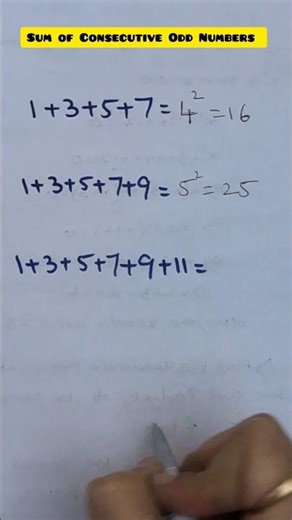 Sum of Consecutive Odd Numbers
1+3+5+7=4²=16
1+3+5+7+9=5²=25
1+3+5+7+9+11=